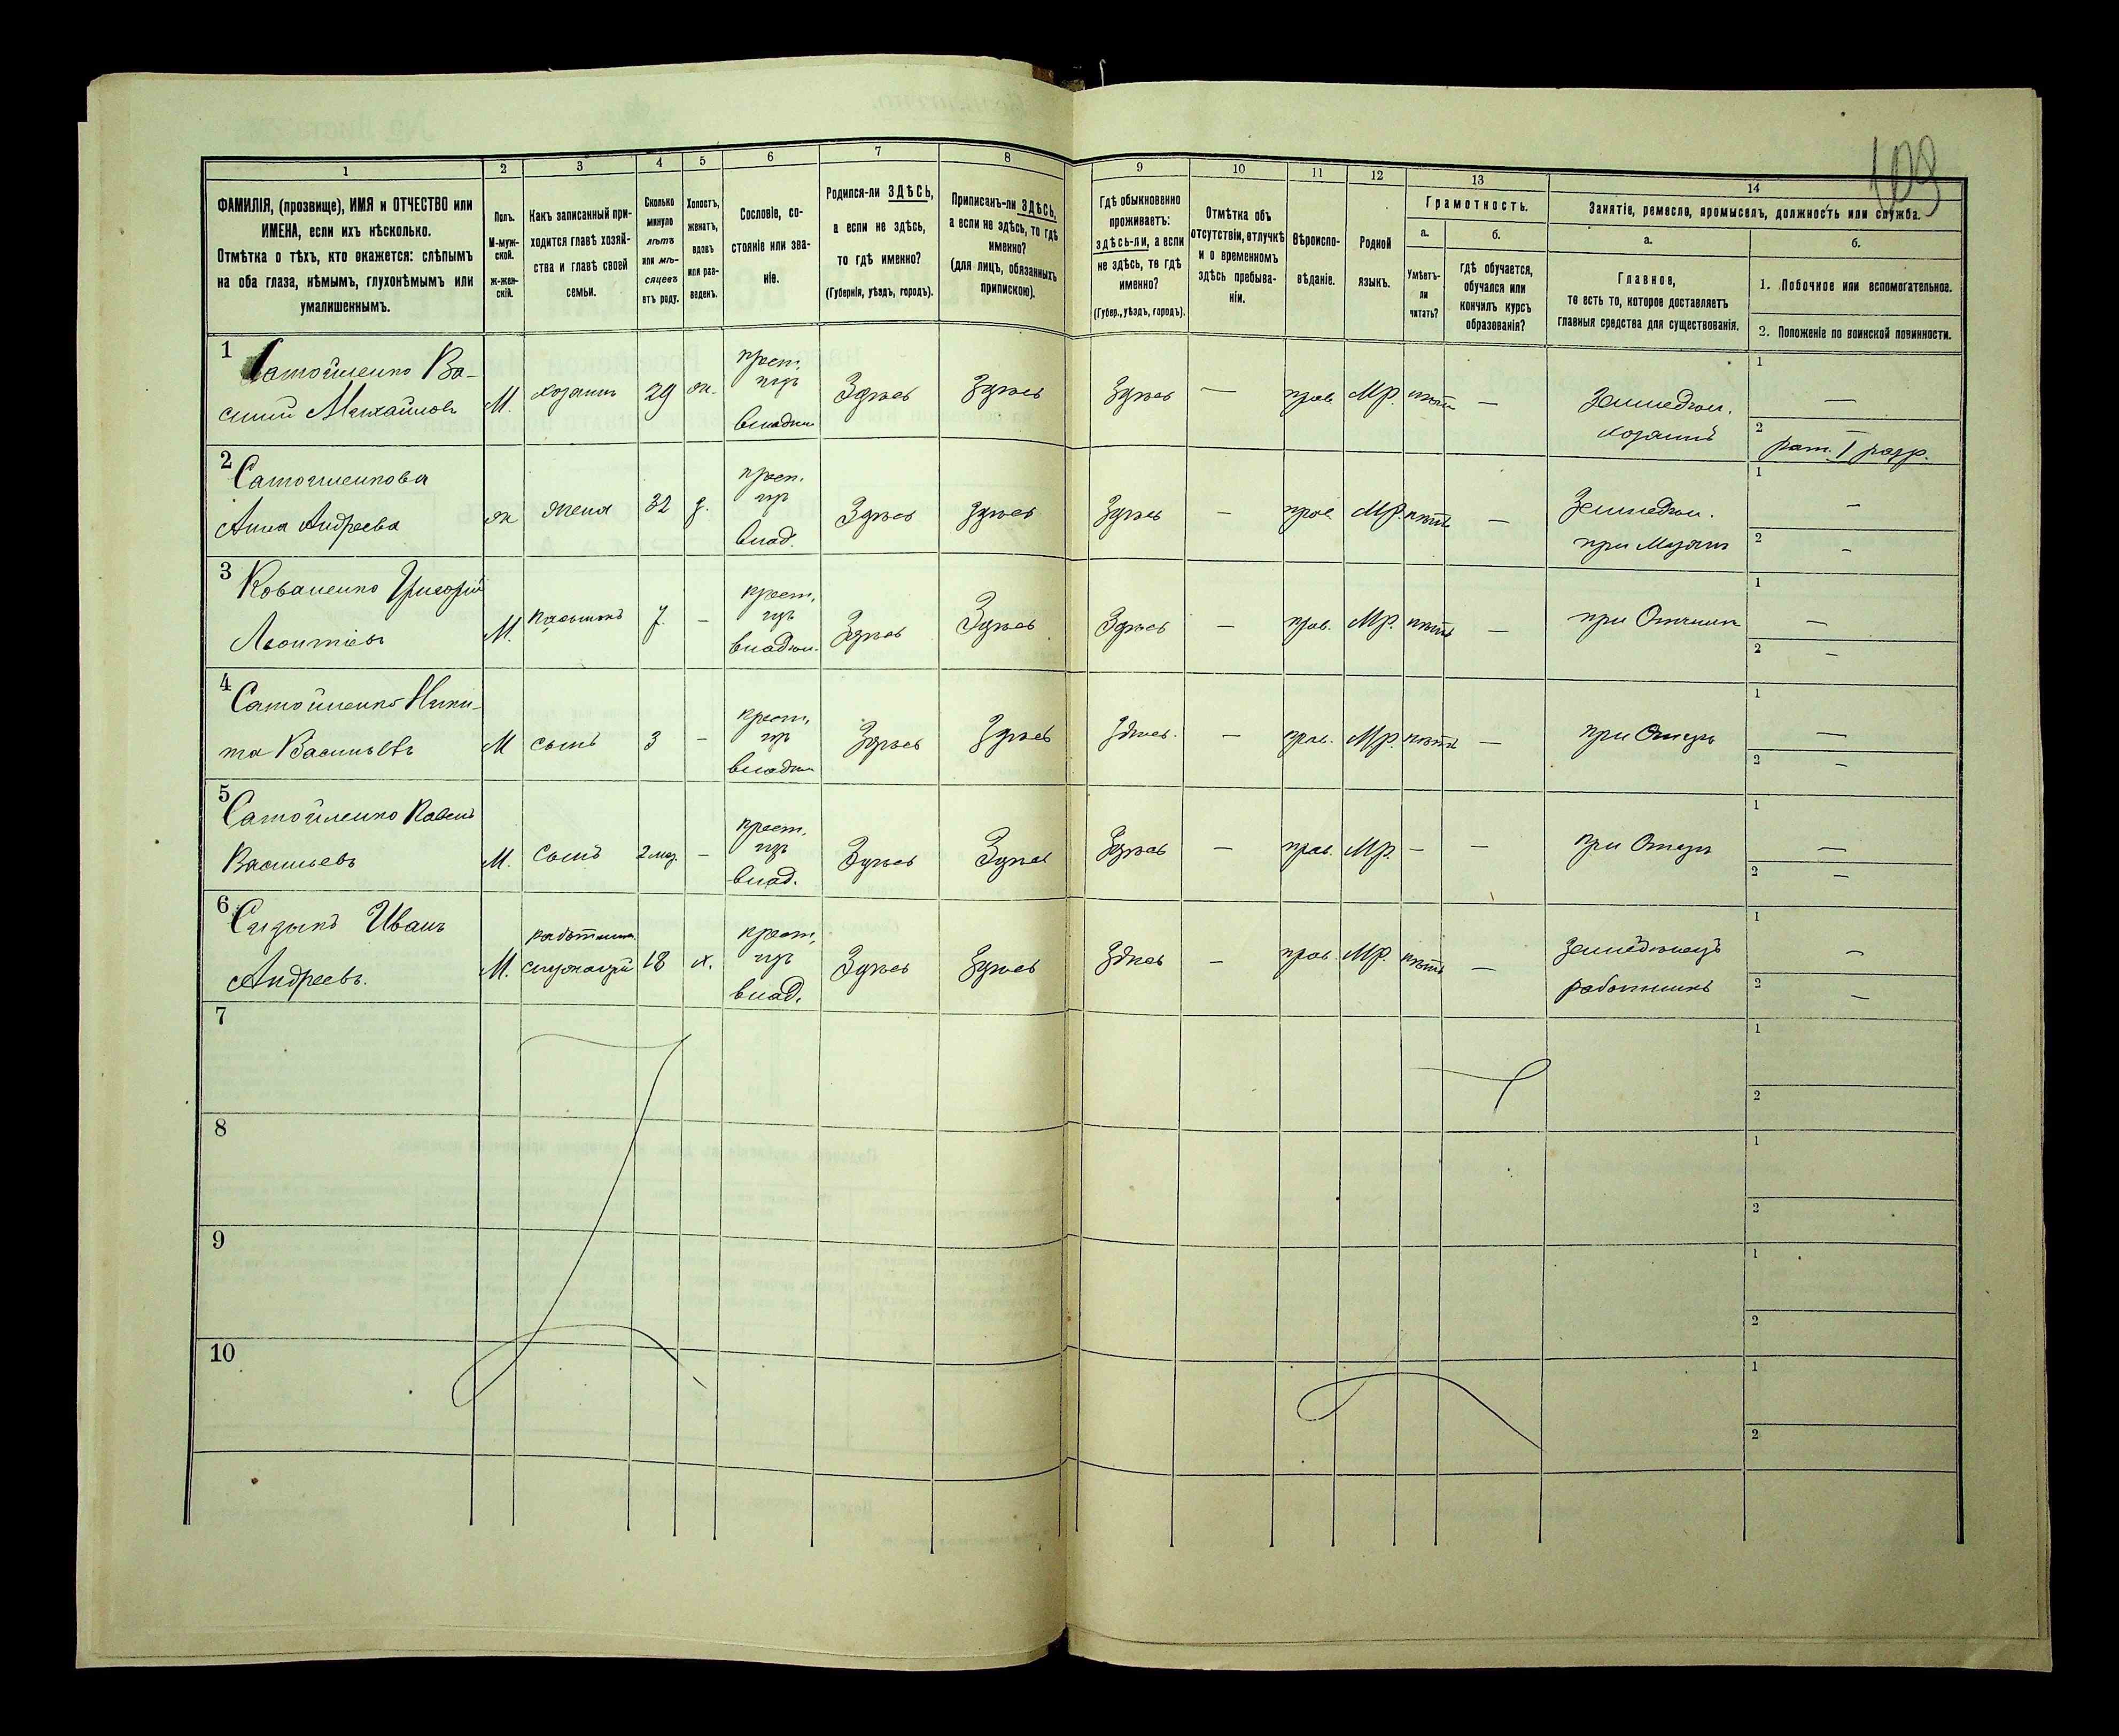 109
1 2 3 4 5 6 7 8 9 10 11 12 13 14
ФАМИЛІЯ, (прозвище), ИМЯ и ОТЧЕСТВО или
ИМЕНА, если ихъ нѣсколько.
Отмѣтка о тѣхъ, кто окажется: слѣпымъ
на оба глаза, нѣмымъ, глухонѣмымъ или
умалишеннымъ.
Полъ.
М-муж-
ской.
ж-жен-
скій.
Какъ записанный при-
ходится главѣ хозяй-
ства и главѣ своей
семьи.
Сколько
минуло
лѣтъ
или мѣ-
сяцевъ
отъ роду.
Холостъ,
женатъ,
вдовъ
или раз-
веденъ.
Сословіе, со-
стояніе или зва-
ніе.
Родился-ли ЗДѢСЬ,
а если не здѣсь,
то гдѣ именно?
(Губернія, уѣздъ, городъ).
Приписанъ-ли ЗДѢСЬ,
а если не здѣсь, то гдѣ
именно?
(для лицъ, обязанныхъ
припискою).
Гдѣ обыкновенно
проживаетъ:
здѣсь-ли, а если
не здѣсь, то гдѣ
именно?
(Губер., уѣздъ, городъ).
Отмѣтка объ
отсутствіи, отлучкѣ
и о временномъ
здѣсь пребыва-
ніи.
Вѣроиспо-
вѣданіе.
Родной
языкъ.
Грамотность.
а.
Умѣетъ-
ли
читать?
б.
гдѣ обучается,
обучался или
кончилъ курсъ
образованія?
Занятіе, ремесло, промыселъ, должность или служба.
а.
Главное,
то есть то, которое доставляетъ
главныя средства для существованія.
б.
1. Побочное или вспомогательное.
2. Положеніе по воинской повинности.
1
Самойленко Ва-
силій Михайловъ
М. хозяинъ 29 ж. крест. изъ владѣл. Здѣсь Здѣсь Здѣсь — прав. Мр. нѣтъ — Земледѣл. хозяинъ
1 —
2 — рат. I разр.
2
Самойленкова
Анна Андреева
ж жена 32 з. крест. изъ влад. Здѣсь Здѣсь Здѣсь — прав. Мр. нѣтъ — Земледѣл. при
1 —
2 —
3
Коваленко Григорій
Леонтіевъ
М. 7. — крест. изъ владѣл. Здѣсь Здѣсь Здѣсь — прав. Мр. нѣтъ — при Отчимѣ
1 —
2 —
4
Самойленко Ники-
та Васильевъ
М сынъ 3 — крест. изъ владѣл Здѣсь Здѣсь Здѣсь. — прав. Мр. нѣтъ — при Отцѣ
1 —
2 —
5
Самойленко Павелъ
Васильевъ
М. сынъ 2 мѣс. — крест. изъ влад. Здѣсь Здѣсь Здѣсь — прав. Мр. — — при Отцѣ
1 —
2 —
6
Иванъ
Андреевъ.
М. работникъ служащій 18 х. крест. изъ влад. Здѣсь Здѣсь Здѣсь — прав. Мр. нѣтъ — Земледѣлецъ работникъ
1 —
2 —
7
1
2
8
1
2
9
1
2
10
1
2